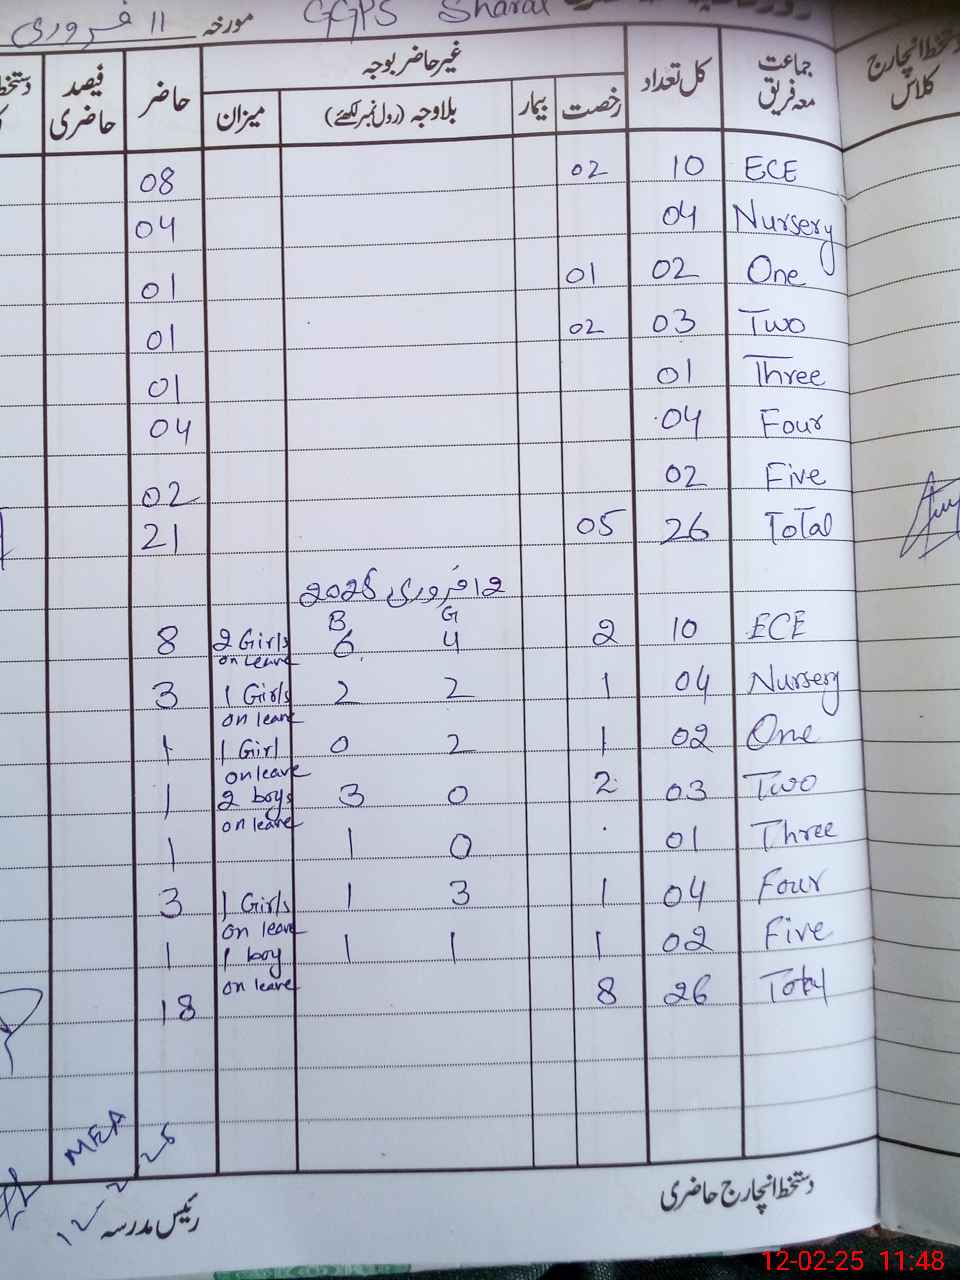 GGPS Sharal مورخہ ۱۱ فروری
جماعت معہ فریق کل تعداد غیر حاضر بوجہ حاضر فیصد حاضری
رخصت بیمار بلاوجہ (رول نمبر لکھئے) میزان
دستخط انچارج کلاس
ECE 10 02 08
Nursery 04 04
One 02 01 01
Two 03 02 01
Three 01 01
Four 04 04
Five 02 02
Total 26 05 21
۱۲ فروری 2025
B G
ECE 10 2 4 6 2 Girls on leave 8
Nursery 04 1 2 2 1 Girls on leave 3
One 02 1 2 0 1 Girl on leave 1
Two 03 2 0 3 2 boys on leave 1
Three 01 0 1 1
Four 04 1 3 1 1 Girls on leave 3
Five 02 1 1 1 1 boy on leave 1
Total 26 8 18
MEA
دستخط انچارج حاضری رئیس مدرسہ
12-02-25 11:48